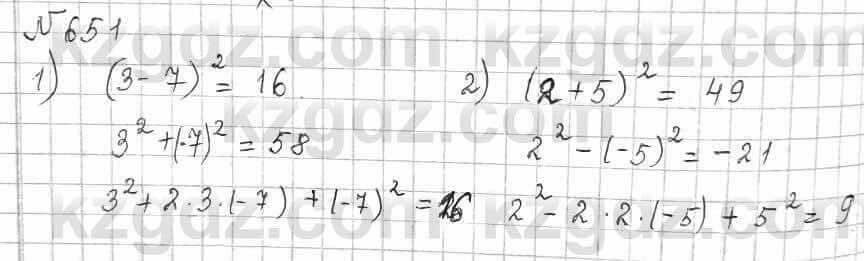 №651
1) (3-7)² = 16
3² + (-7)² = 58
3² + 2·3·(-7) + (-7)² = 16
2) (2+5)² = 49
2² - (-5)² = -21
2² - 2·2·(-5) + 5² = 9
kzgdz.com kzgdz.com
kzgdz.com
kzgdz.com kzgdz.com